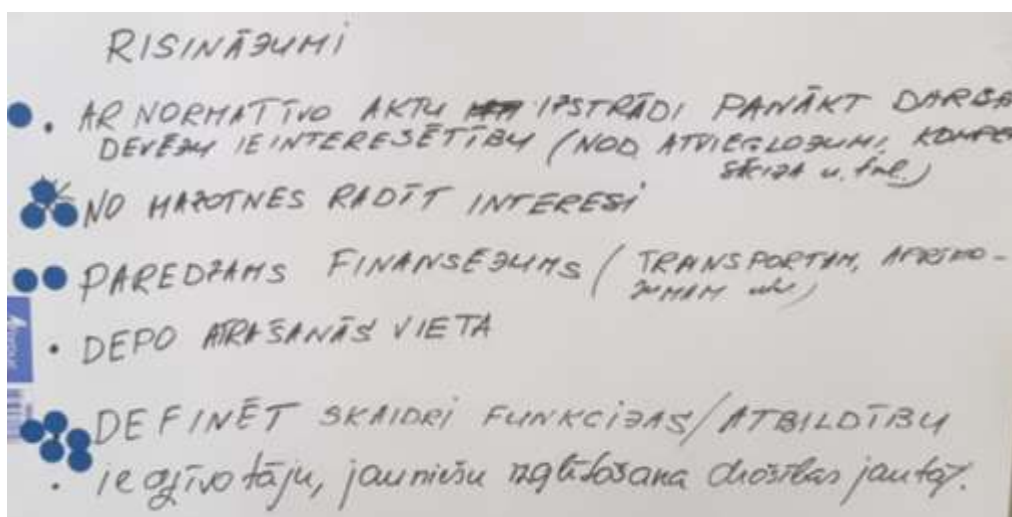 RISINĀJUMI
AR NORMATĪVO AKTU IZSTRĀDI PANĀKT DARBA
DEVĒJU IEINTERESĒTĪBU (NOD. ATVIEGLOJUMI, KOMPEN
SĀCIJA u.tml.)
NO MAZOTNES RADĪT INTERESI
PAREDZAMS FINANSĒJUMS (TRANSPORTAM, APRĪKO-
JUMAM utt.)
DEPO ATRAŠANĀS VIETA
DEFINĒT SKAIDRI FUNKCIJAS/ATBILDĪBU
iedzīvotāju, jauniešu izglītošana drošības jautāj.